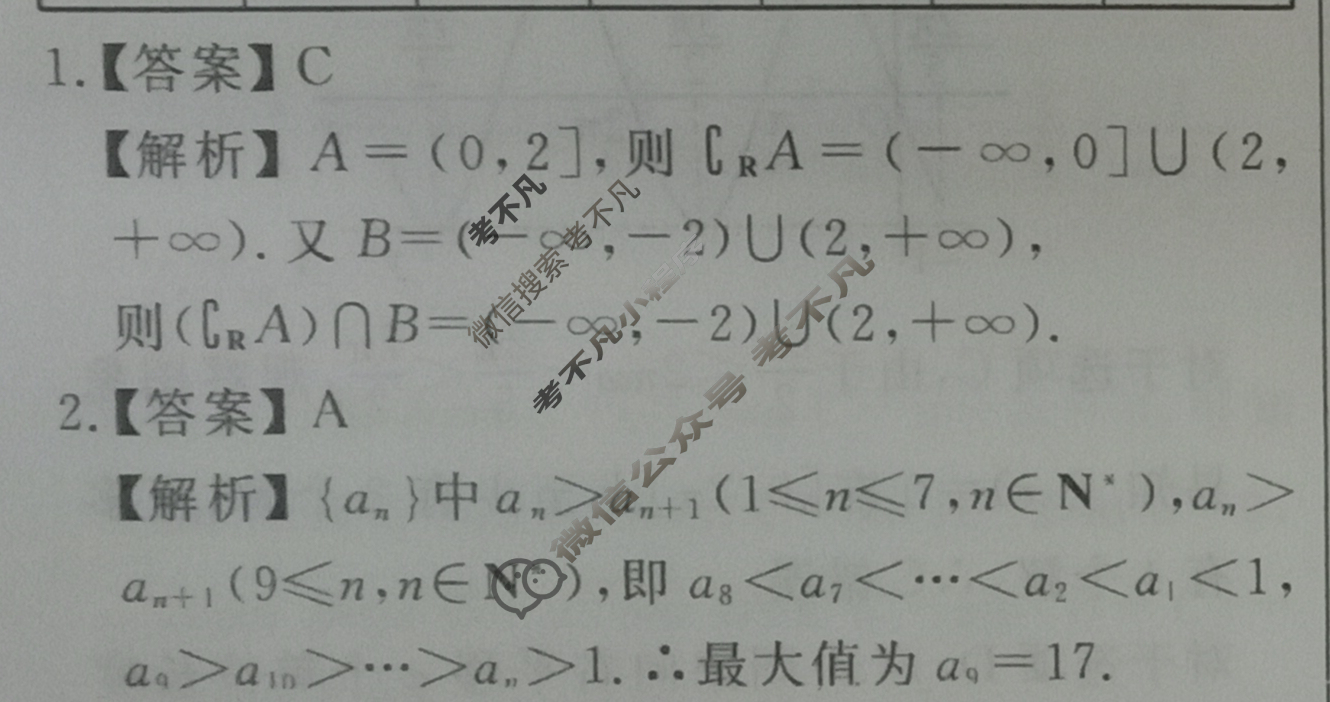 1.【答案】C
【解析】A=(0,2],则∁RA=(-∞,0]∪(2,
+∞).又B=(-∞,-2)∪(2,+∞),
则(∁RA)∩B=(-∞,-2)∪(2,+∞).
2.【答案】A
【解析】{aₙ}中aₙ>aₙ₊₁(1≤n≤7,n∈N*),aₙ>
aₙ₊₁(9≤n,n∈N*),即a₈<a₇<⋯<a₂<a₁<1,
a₉>a₁₀>⋯>aₙ>1.∴最大值为a₉=17.
考不凡
微信搜索 考不凡
考不凡小程序
微信公众号 考不凡